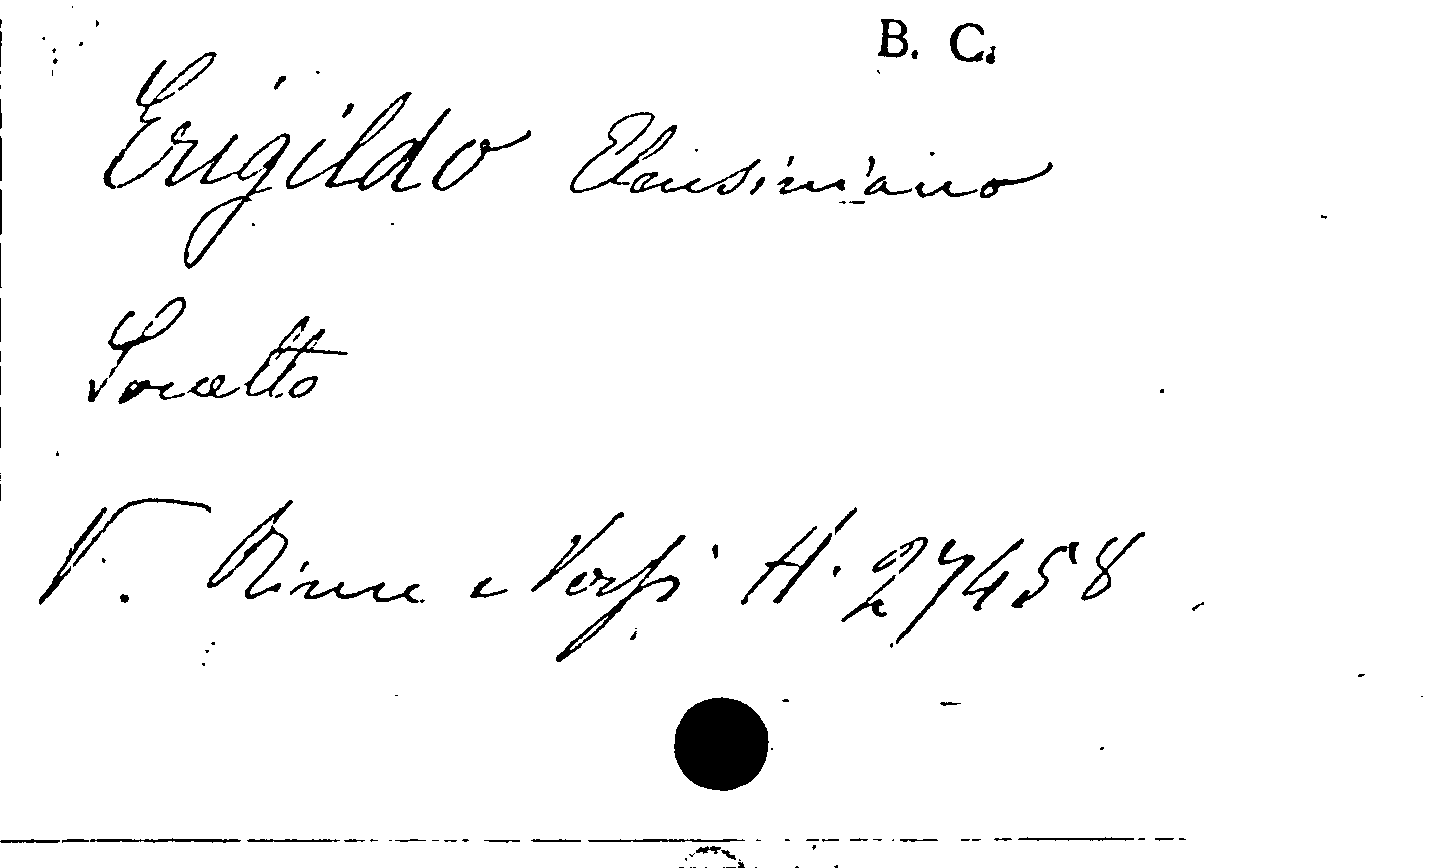 B. C.
Erigildo Eleusiniano
Sonetto
V. Rime e Versi H. 27458